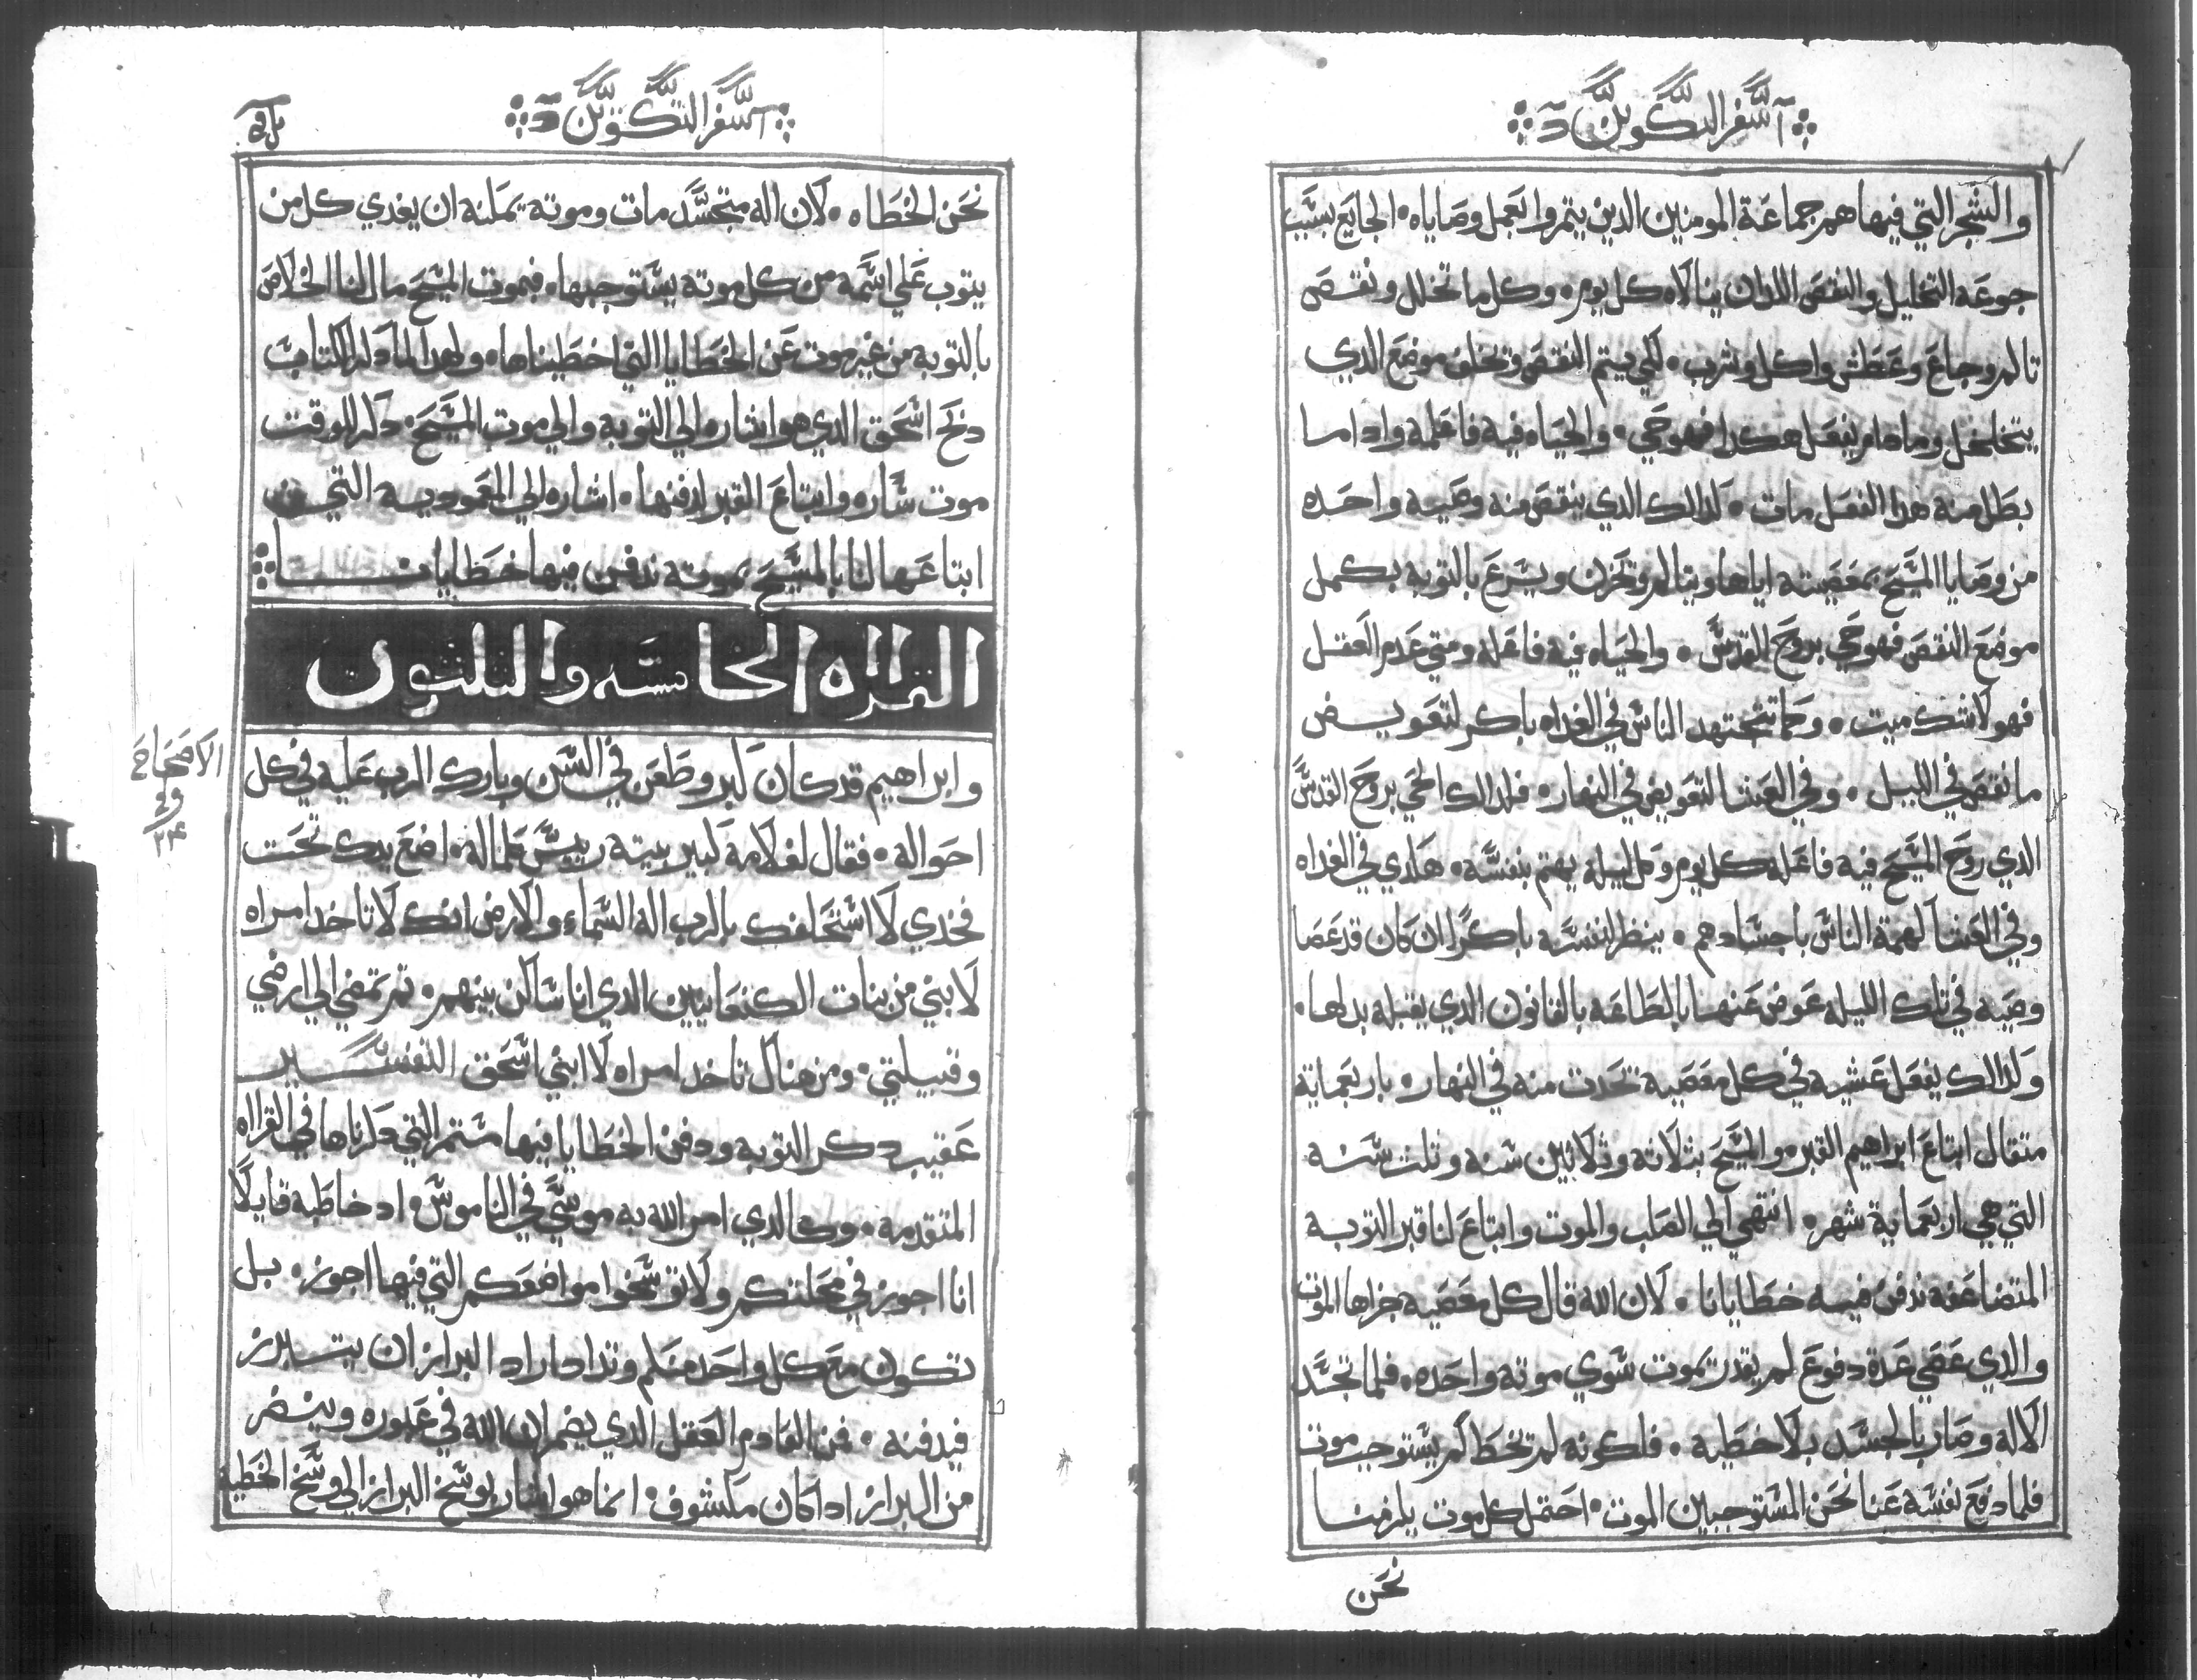 سفر التكوين
والشجر التي فيها هم جماعة المومنين الدين يتمروا بعمل وصاياه الجايع بسبب
جوعه التحليل والنقص اللدان ينالاه كل يوم وكل ما تحلل ونقص
تالم وجاع وعطش واكل وشرب لكي يتم النقص وتخلف موضع الدي
يتخلخل وما دام يفعل هكدا فهو حي والحياه فيه فاعله وادا ما
بطل منه هدا الفعل مات كدالك الدي ينقص منه وصيه واحده
من وصايا المسيح بمعصيته اياها ويتالم وتحزن ويسرع بالتوبه يكمل
موضع النقص فهو حي بروح القدس والحياه فيه فاعله ومتي عدم العقل
فهو لاشك ميت وكما تجتهد الناس في الغداه باكر لتعويض
ما نقص في الليل وفي العشا لتعويض في النهار فلدالك الحي بروح القدس
الدي روح المسيح فيه فاعله كل يوم وكل ليله يهتم بنفسه هكدي في الغداه
وفي العشا كهمة الناس باجسادهم ينظر لنفسه باكرا ان كان قد عصا
وصيه في تلك الليله عوض عنها بالطاعه بالقانون الدي يقبله بدلها
وكدالك يفعل عشيه في كل معصيه تحدت منه في النهار باربعماية
متقال ابتاع ابراهيم القبر والمسيح بتلاته وثلاتين سنه وتلت سنه
التي هي اربعماية شهر انتهي الي الصلب والموت وابتاع لنا قبر التوبه
المتضاعفه ندفن فيه خطايانا لان الله قال كل معصيه جزاها الموت
والدي عصي عدة دفوع لم يقدر يموت سوي موته واحده فلما تجسد
الاله وصار بالجسد بلا خطيه فلكونه لم تخط لم يستوجب موت
فلما دفع نفسه عنا نحن المستوجبين الموت احتمل كل موت يلزمنا
نحن
سفر التكوين
نحن الخطاه لان اله متجسد مات وموته يمكنه ان يفدي كل من
يتوب علي اسمه من كل موته يستوجبها فبموت المسيح مال لنا الخلاص
بالتوبه من غير موت عن الخطايا التي اخطيناها ولهدا لما دكر الكتاب
دبح اسحق الدي هو اشاره الي التوبه والي موت المسيح دكر الوقت
موت ساره وابتاع القبر لدفنها اشاره الي المعموديه التي
ابتاعها لنا بالمسيح بموته ندفن فيها خطايانا
القراه الخامسه والتلتون
وابراهيم قد كان كبر وطعن في السن وبارك الرب عليه في كل
الاصحاح
٢٤
احواله فقال لغلامه كبير بيته رييس علماله اضع يدك تحت
فخدي لا استحلفك بالرب اله السماء والارض انك لا تاخد امراه
لابني من بنات الكنعانيين الدي انا ساكن بينهم تم تمضي الي ارضي
وقبيلتي ومن هناك تاخد امراه لا ابني اسحق التفسير
عقيب دكر التوبه ودفن الخطايا فيها مستمر التي دكرناها في القراه
المتقدمه وكالدي امر الله به موسي في الناموس اد خاطبه قايلا
انا اجوز في محلتكم ولا توسخوا مواضعكم التي فيها اجوز بل
تكون مع كل واحد منكم وتدا دا اراد البراز ان يتبرز
فيدفنه فمن القادم العقل الدي يضمر ان الله في عبوره وينضر
من البراز ادا كان مكشوف انما هو اشار بوسخ البراز الي وسخ الخطيه